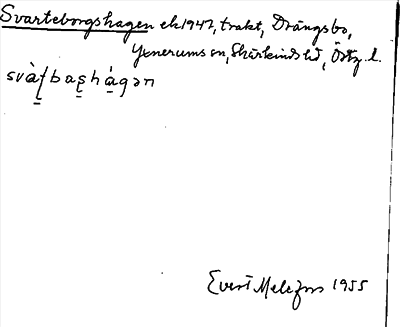 Svarteborgshagen ek 1947, trakt, Drängsbo,
Yxnerums sn, Skärkinds hd, Östg. l.
Evert Melefors 1955